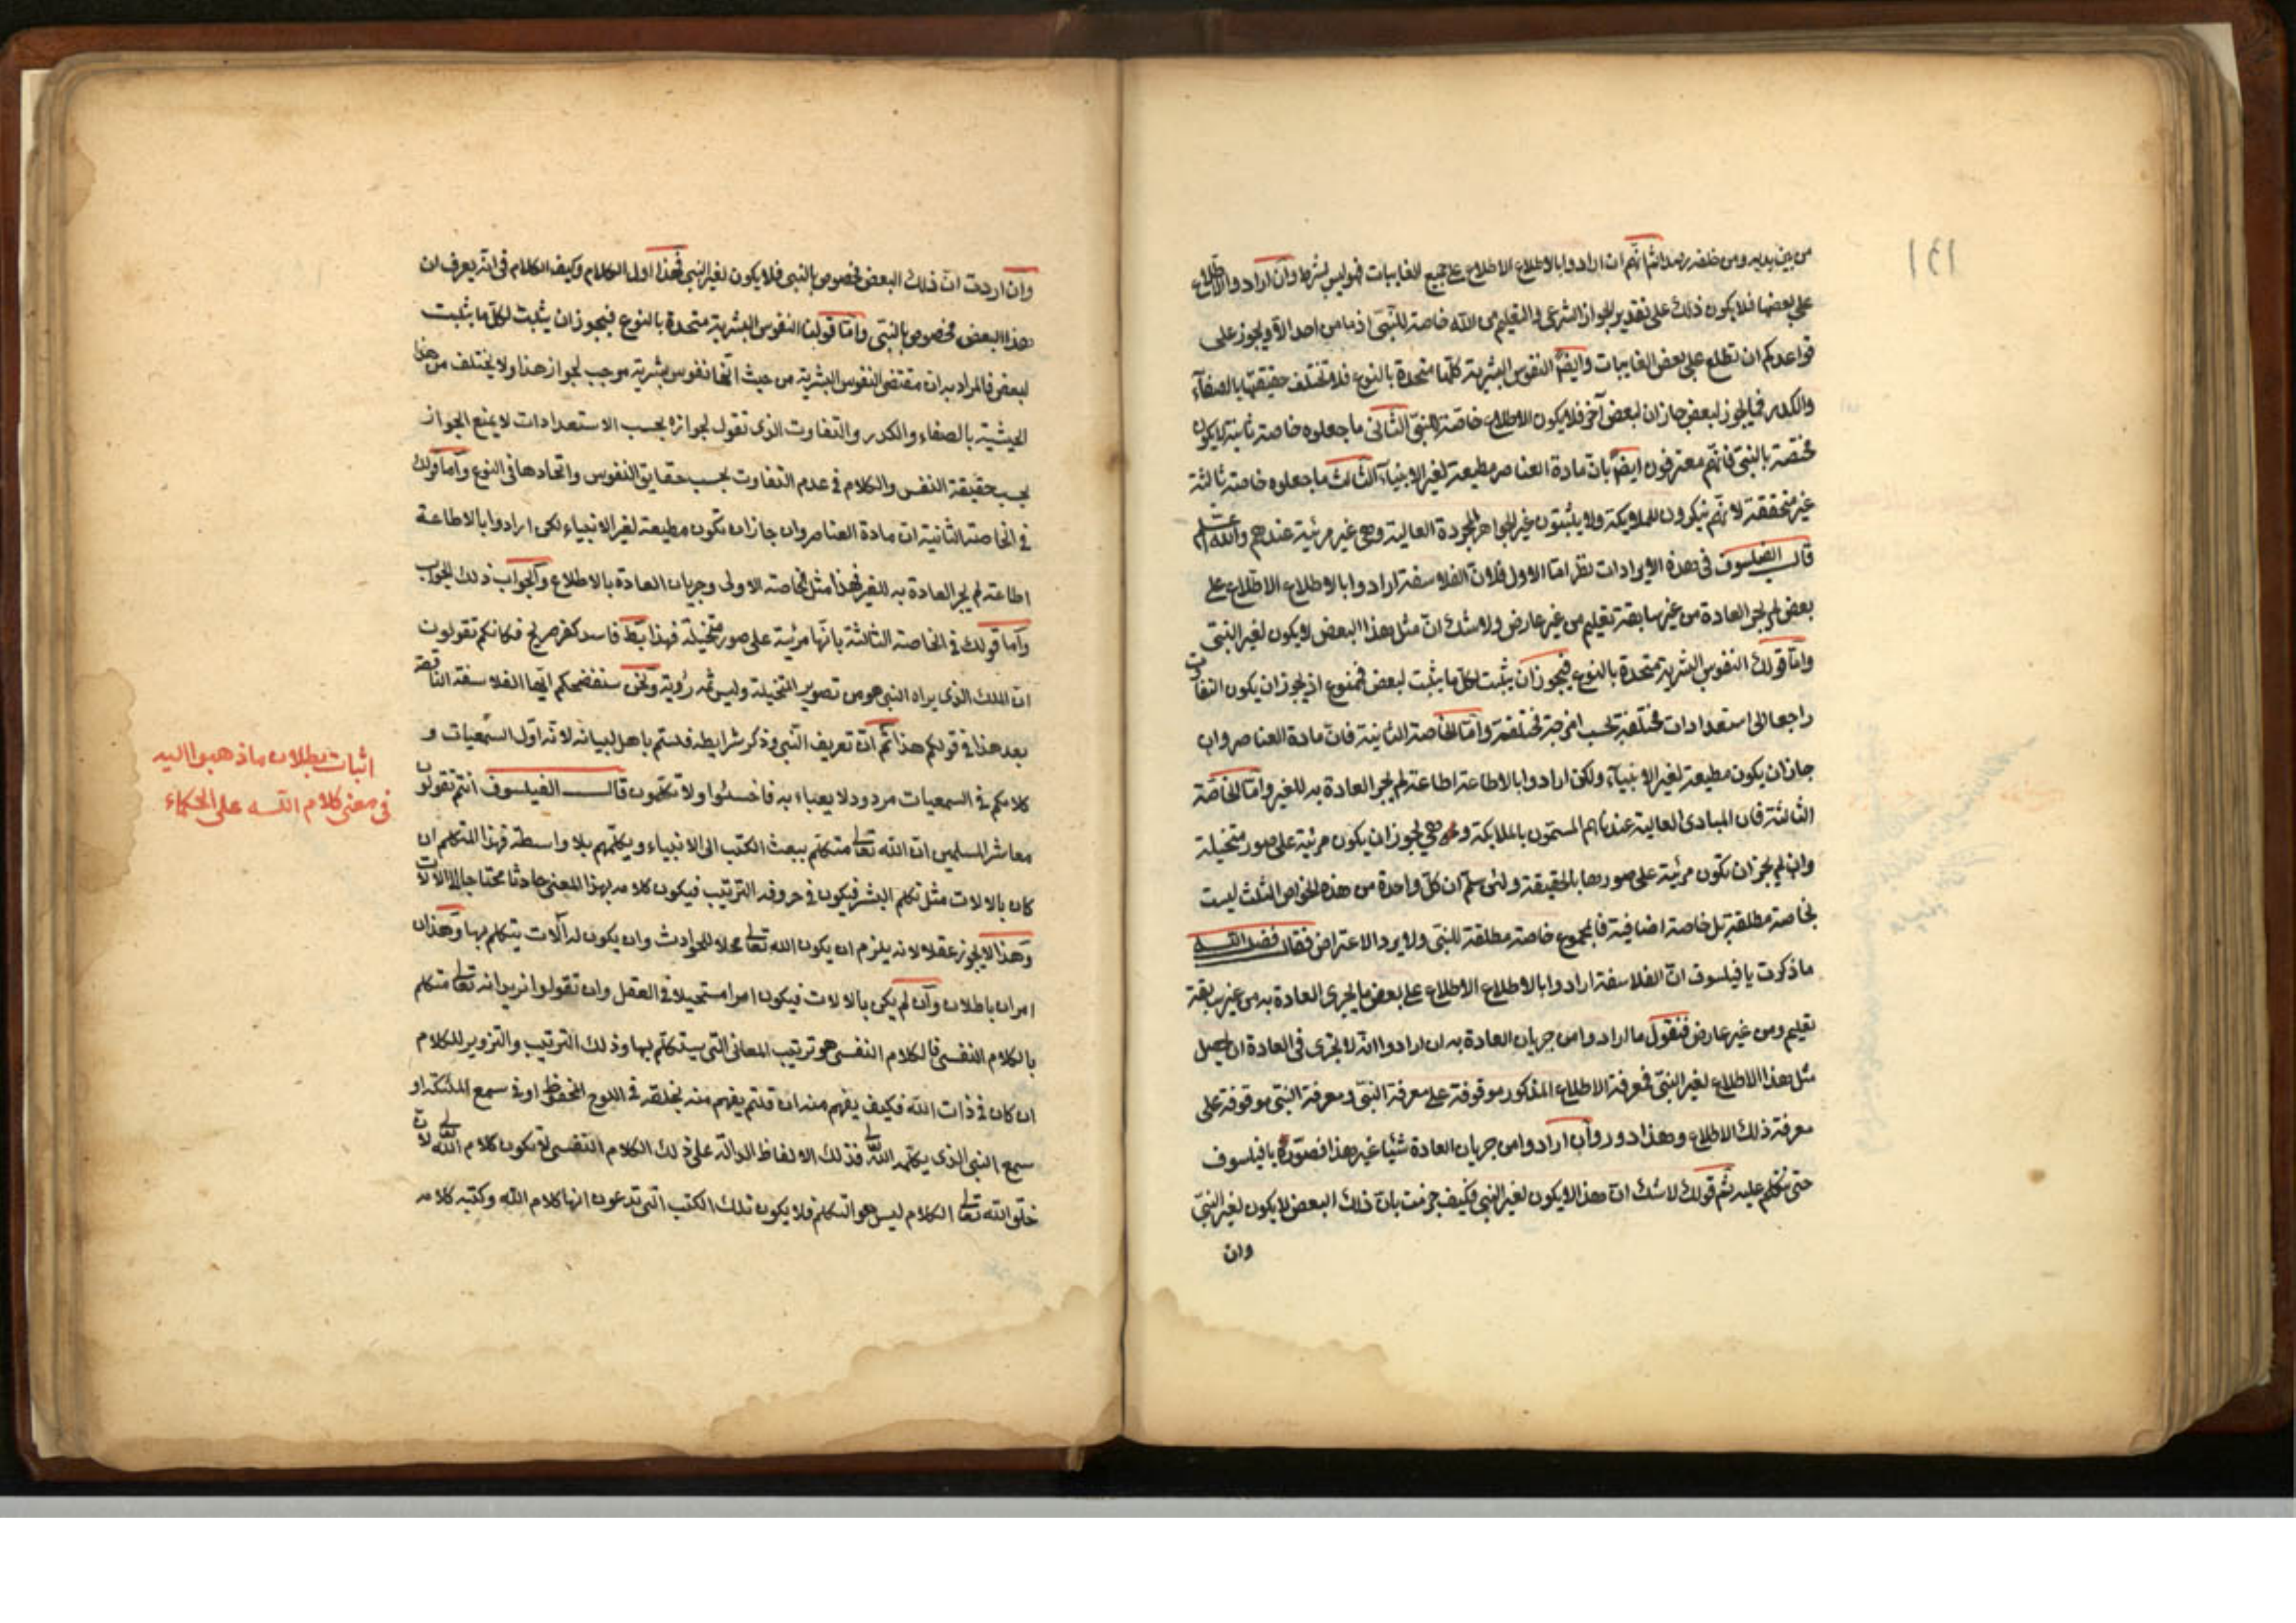 ١٤١
من بين يديه ومن خلفه رصدا ثم انهم ان ارادوا بالاطلاع الاطلاع على جميع الغايبات فهو ليس بشرط وان ارادوا الاطلاع
على بعضها فلا يكون ذلك على تقدير الجواز الشرعى والتعليم من الله خاصة للنبى اذ ما من احد الا ويجوز على
قواعدكم ان تطلع على بعض الغايبات وايضا النفوس البشرية كلها متحدة بالنوع فلا تختلف حقيقتها بالصفاء
والكدر فما يجوز لبعض جاز ان لبعض آخر فلا يكون الاطلاع خاصة للنبى الثانى ما جعلوه خاصة ثانية لا يكون
مختصة بالنبى فانهم معترفون ايضا بان مادة العناصر مطيعة لغير الانبياء الثالث ما جعلوه خاصة ثالثة
غير متحققة لانهم ينكرون الملايكة ولا يثبتون غير الجواهر المجردة العالية وهى غير مرئية عندهم والله اعلم
قال الفيلسوف فى هذه الايرادات نظر اما الاول فلان الفلاسفة ارادوا بالاطلاع الاطلاع على
بعض لم يجر العادة من غير سابقة تعليم من غير عارض ولا شك ان مثل هذا البعض لا يكون لغير النبى
واما قولك النفوس البشرية متحدة بالنوع فيجوز ان يثبت لكل ما يثبت لبعض فممنوع اذ يجوز ان يكون التفاوت
راجعا الى استعدادات مختلفة بحسب امزجة مختلفة واما الخاصة الثانية فان مادة العناصر وان
جاز ان يكون مطيعة لغير الانبياء ولكن ارادوا بالاطاعة اطاعة لم يجر العادة به للغير واما الخاصة
الثالثة فان المبادى العالية عندنا هم المسمون بالملايكة وهى يجوز ان يكون مرئية على صور متخيلة
وان لم يجز ان تكون مرئية على صورها بالحقيقة ولئن سلم ان كل واحدة من هذه الخواص الثلث ليست
بخاصة مطلقة بل خاصة اضافية فالمجموع خاصة مطلقة للنبى ولا يرد الاعتراض فقال فضل الله
ما ذكرت يا فيلسوف ان الفلاسفة ارادوا بالاطلاع الاطلاع على بعض ما يجرى العادة به من غير سابقة
تعليم ومن غير عارض فنقول ما ارادوا من جريان العادة به ان ارادوا انه لا يجرى فى العادة ان يحصل
مثل هذا الاطلاع لغير النبى فمعرفة الاطلاع المذكور موقوفة على معرفة النبى ومعرفة النبى موقوفة على
معرفة ذلك الاطلاع وهذا دور وان ارادوا من جريان العادة شيئا غير هذا فصوره يا فيلسوف
حتى نتكلم عليه ثم قولك لا شك ان هذا لا يكون لغير النبى فكيف جزمت بان ذلك البعض لا يكون لغير النبى
وان
وان اردت ان ذلك البعض مخصوص بالنبى فلا يكون لغير النبى فهذا اول الكلام وكيف الكلام فى انه يعرف ان
هذا البعض مخصوص بالنبى واما قولنا النفوس البشرية متحدة بالنوع فيجوز ان يثبت لكل ما يثبت
لبعض فالمراد به ان مقتضى النفوس البشرية من حيث انها نفوس بشرية موجب لجواز هذا ولا يختلف من هذا
الحيثية بالصفاء والكدر والتفاوت الذى تقول لجوازه بحسب الاستعدادات لا يمنع الجواز
بحسب حقيقة النفس والكلام فى عدم التفاوت بحسب حقايق النفوس واتحادها فى النوع واما قولك
فى الخاصة الثانية ان مادة العناصر وان جاز ان تكون مطيعة لغير الانبياء لكن ارادوا بالاطاعة
اطاعة لم يجر العادة به للغير فهذا مثل الخاصة الاولى وجريان العادة بالاطلاع والجواب ذلك الجواب
واما قولك فى الخاصة الثالثة بانها مرئية على صور متخيلة فهذا فاسد كفر صريح فكانكم تقولون
ان الملك الذى يراه النبى هو من تصوير المتخيلة وليس ثمه رؤية ونحن سنفضحكم ايها الفلاسفة الناقصة
بعد هذا فى قولكم هذا ثم ان تعريف النبى وذكر شرايطه فلستم باهل لبيانه لانه اول السمعيات و
كلامكم فى السمعيات مردود لا يعباء به فاخسئوا ولا تكلمون قال الفيلسوف انتم تقولون
معاشر المسلمين ان الله تعالى متكلم ببعث الكتب الى الانبياء ويكلمهم بلا واسطة فهذا التكلم ان
كان بالالات مثل تكلم البشر فيكون فى حروفه الترتيب فيكون كلامه بهذا المعنى حادثا محتاجا الى الالات
وهذا لا يجوز عقلا لانه يلزم ان يكون الله تعالى محلا للحوادث وان يكون له آلات يتكلم بها وهذان
امران باطلان وان لم يكن بالالات فيكون امرا مستحيلا فى العقل وان تقولوا نريد انه تعالى متكلم
بالكلام النفسى فالكلام النفسى هو ترتيب المعانى التى سيتكلم بها وذلك الترتيب والتزوير للكلام
ان كان فى ذات الله فكيف يفهم منه ان قلتم يفهم منه بخلقه فى اللوح المحفوظ او فى سمع الملئكة او
سمع النبى الذى يكلمه الله تعالى فذلك الالفاظ الدالة على ذلك الكلام النفسى لا تكون كلام الله تعالى لان
خلق الله تعالى الكلام ليس هو التكلم فلا يكون تلك الكتب التى تدعون انها كلام الله وكتبه كلامه
اثبات بطلان ما ذهبوا اليه
فى معنى كلام الله على الحكماء